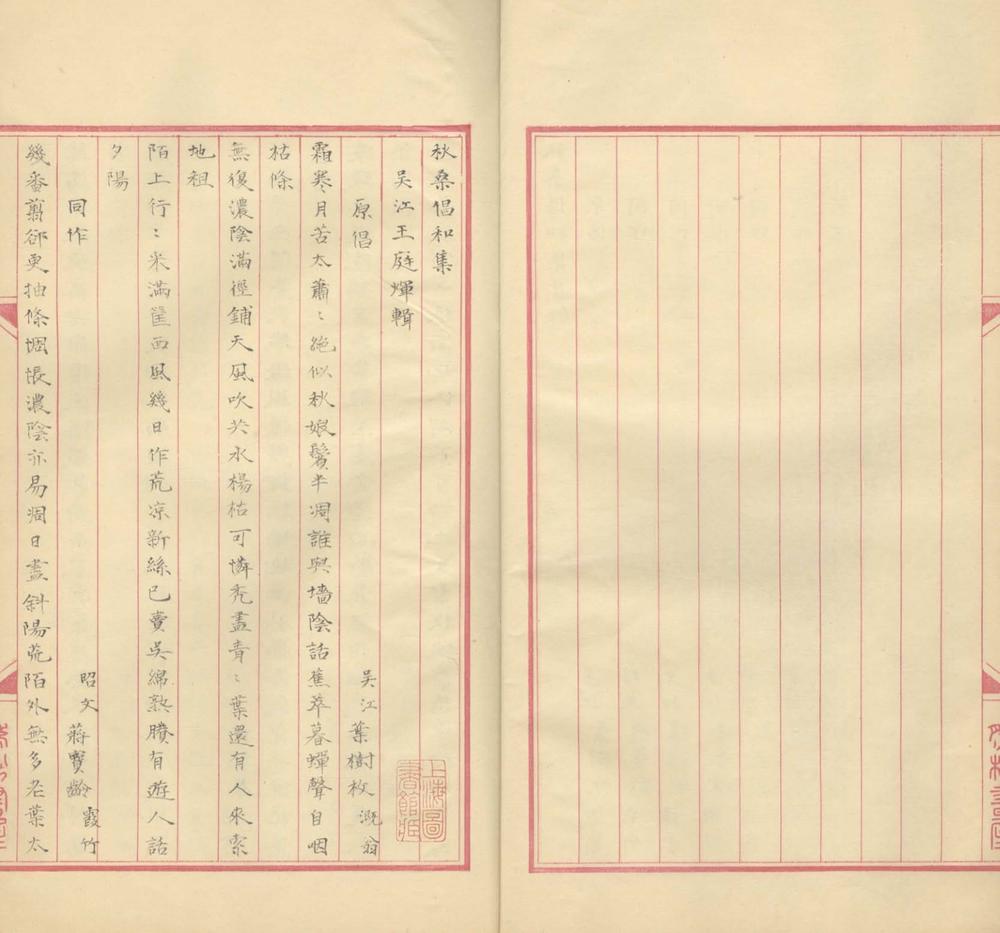 秋桑倡和集
吳江王庭煇輯
原倡 吳江葉樹枚溉翁
霜寒月苦太蕭〻絶似秋娘鬢半凋誰與墻陰話蕉萃暮蟬聲自咽
枯條
無復濃陰滿徑鋪天風吹共水楊枯可憐禿盡青〻葉還有人來索
地租
陌上行〻采滿筐西風幾日作荒凉新絲已賣吳綿熟賸有遊人話
夕陽
同作 昭文蔣寶齡霞竹
幾番翦郤更抽條惆悵濃陰亦易凋日盡斜陽荒陌外無多老葉太
上海圖書館藏